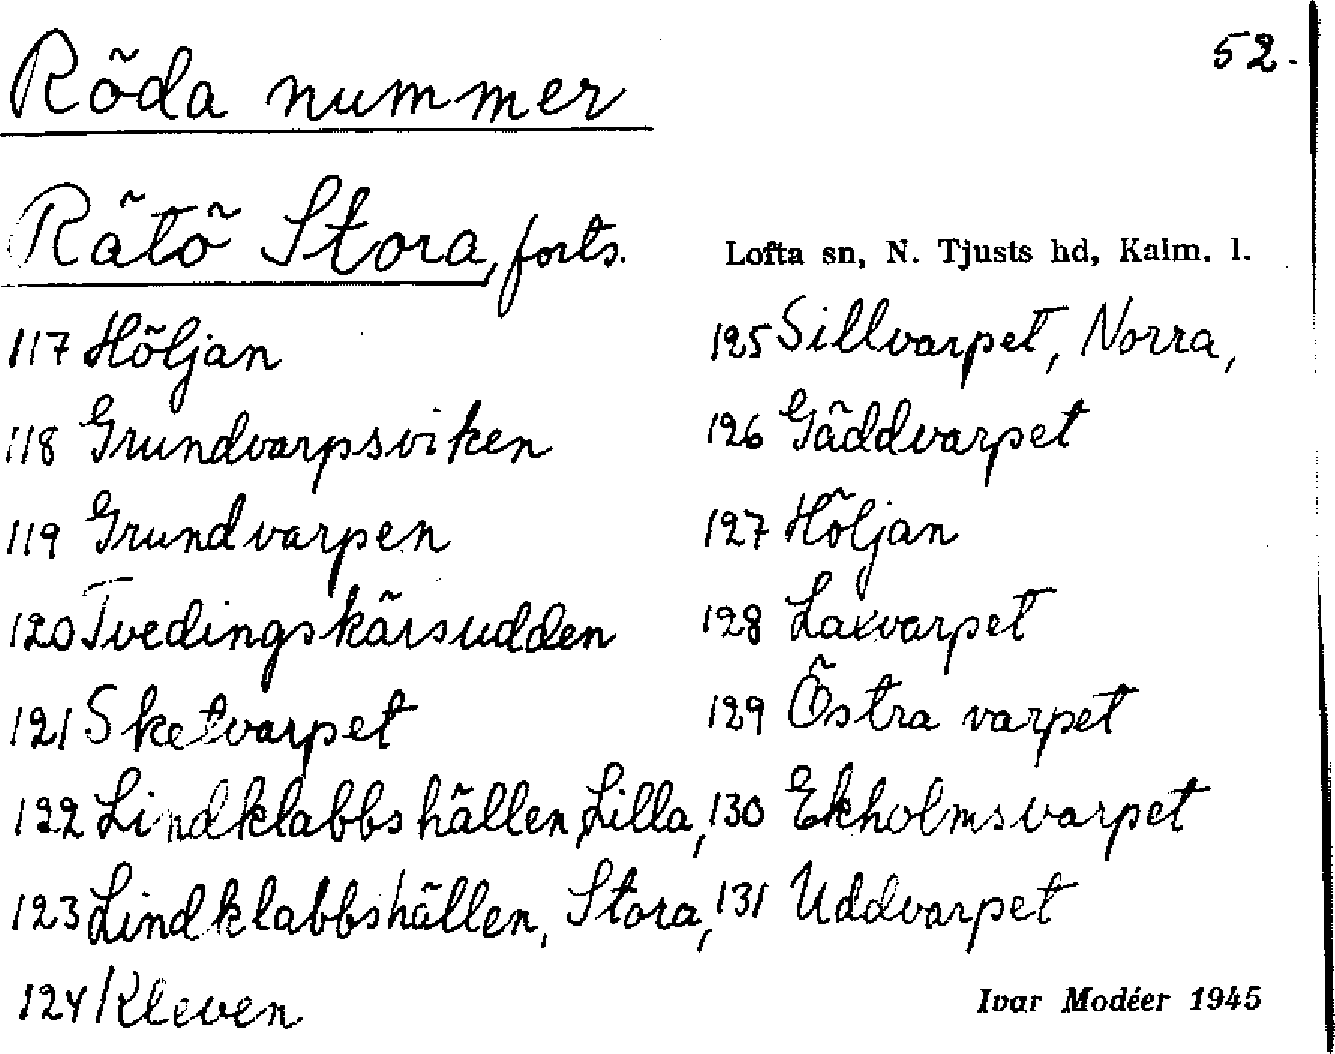 52.
Röda nummer
Rätö Stora, forts.
Lofta sn, N. Tjusts hd, Kalm. l.
117 Höljan
118 Grundvarpsviken
119 Grundvarpen
120 Tvedingskärsudden
121 Sketvarpet
122 Lindklabbshällen, Lilla,
123 Lindklabbshällen, Stora,
124 Kleven
125 Sillvarpet, Norra,
126 Gäddvarpet
127 Höljan
128 Laxvarpet
129 Östra varpet
130 Ekholmsvarpet
131 Uddvarpet
Ivar Modéer 1945